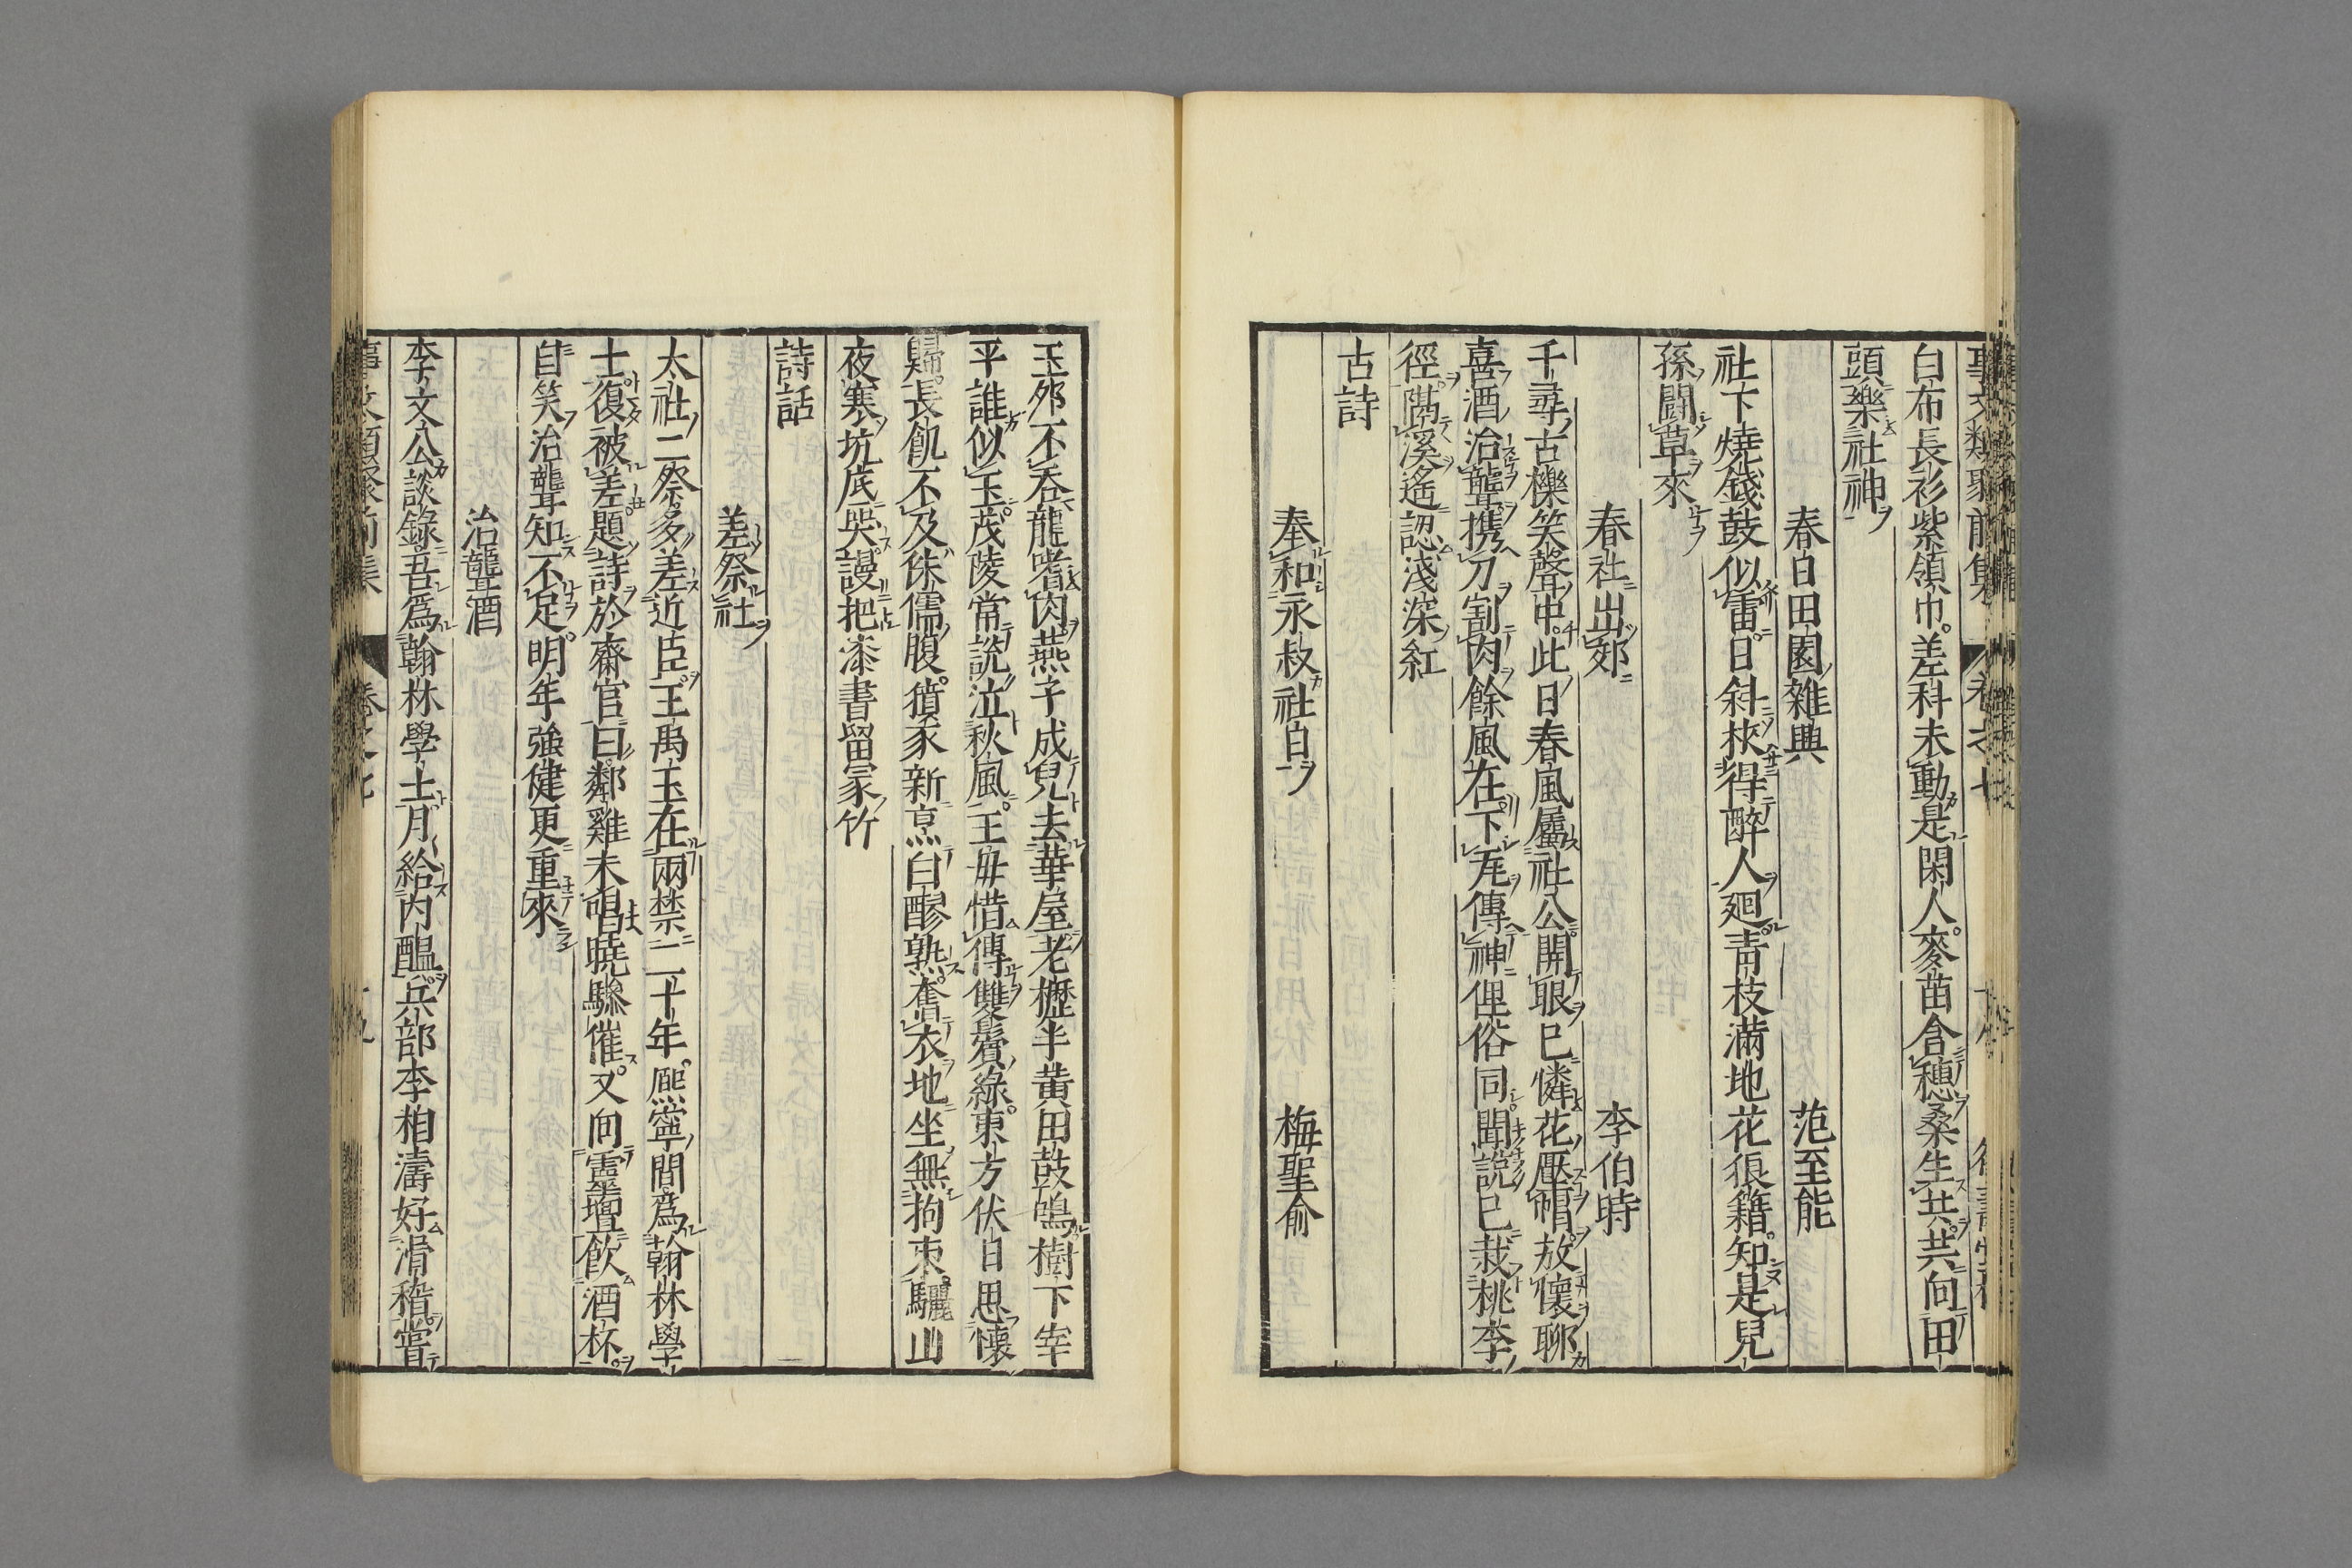 白布長衫紫領巾差科未動是閑人麥苗含穗桑生共共向田
頭樂社神
春日田園雜興 范至能
社下燒錢鼓似雷日斜扶得醉人廻青枝滿地花狼籍知是兒
孫鬪草來
春社出郊 李伯時
千尋古櫟笑聲中此日春風屬社公開眼已憐花壓帽放懷聊
喜酒治聾携刀割肉餘風在下瓦傳神俚俗同聞說已栽桃李
徑隔溪遙認淺深紅
古詩
奉和永叔社日 梅聖俞
玉邜不吞龍嗜肉燕子成兒去華屋老櫪半黃田鼓鳴樹下宰
平誰似玉茂陵常說泣秋風王毋惜傳雙鬢綠東方伏日思懷
歸長飢不及侏儒腹豶豕新烹白醪熟奮衣地坐無拘束驪山
夜寒坑底哭謾把漆書留冡竹
詩話
差祭社
太社二祭多差近臣王禹玉在兩禁二十年熈寧間爲翰林學
士復被差題詩於齋官曰鄰雞未唱曉驂催又向靈壇飮酒杯
自笑治聾知不足明年強健更重來
治聾酒
李文公談錄吾爲翰林學士月給内醖兵部李相濤好滑稽嘗